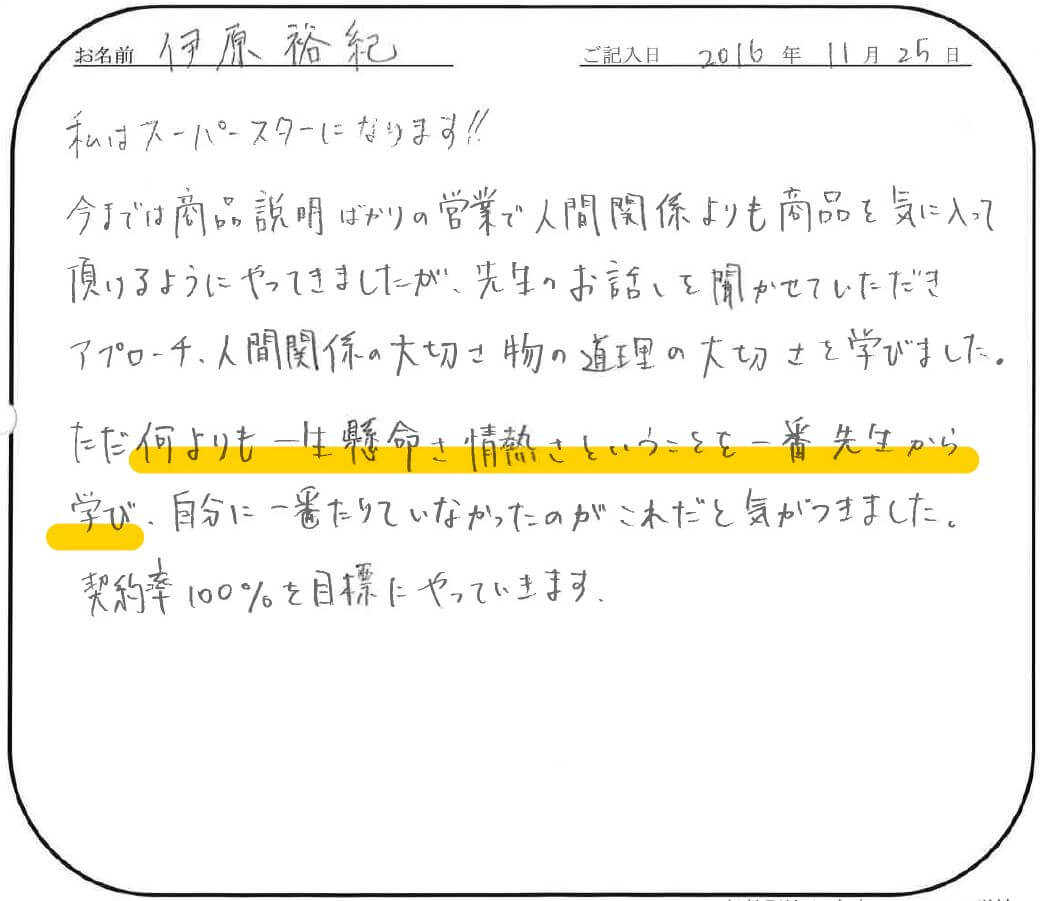 お名前 伊原裕紀 ご記入日 2016年11月25日
私はスーパースターになります!!
今までは商品説明ばかりの営業で人間関係よりも商品を気に入って
頂けるようにやってきましたが、先生のお話しを聞かせていただき
アプローチ、人間関係の大切さ物の道理の大切さを学びました。
ただ何よりも一生懸命さ情熱さということを一番先生から
学び、自分に一番たりていなかったのがこれだと気がつきました。
契約率100%を目標にやっていきます。